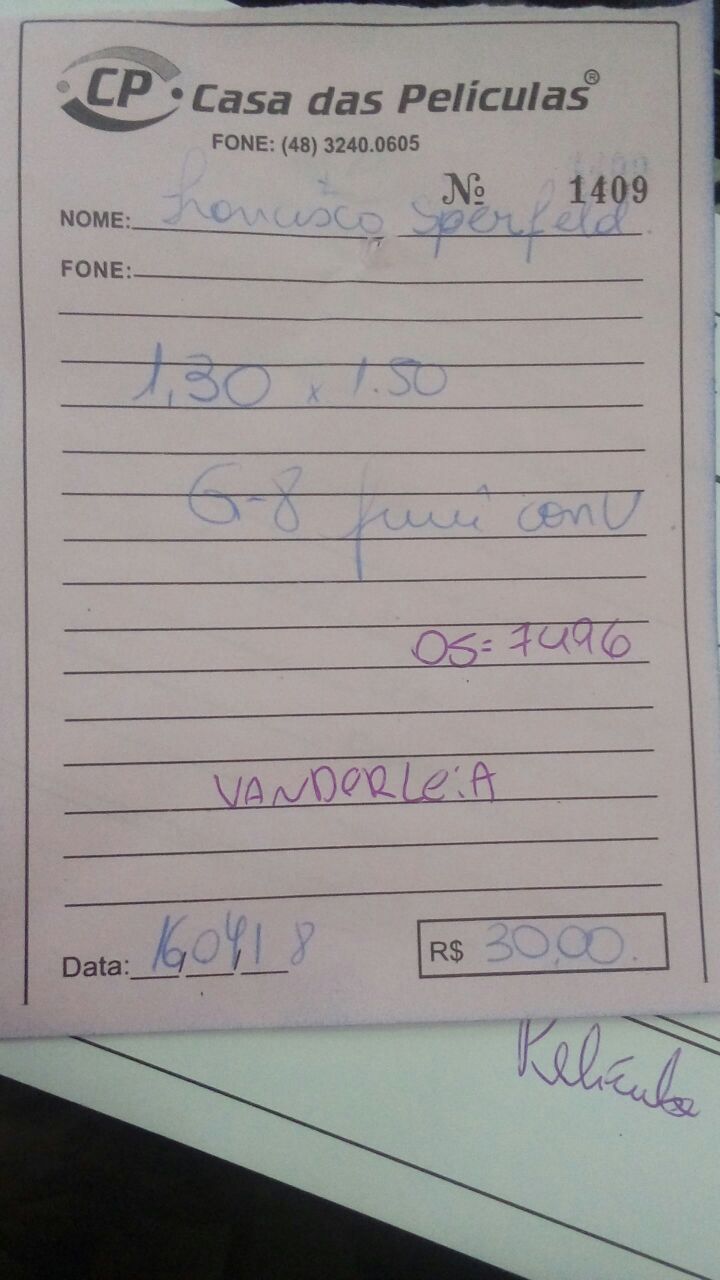 CP Casa das Películas®
FONE: (48) 3240.0605
Nº 1409
NOME: Francisco Sperfeld
FONE:
1,30 x 1.50
G-8 fumê conv
OS= 7496
VANDERLEIA
Data: 16/04/18 R$ 30,00.
Película